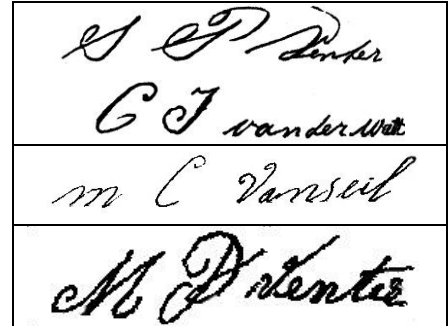 S P Venter
C J van der Watt
M C Vanseil
M P Venter